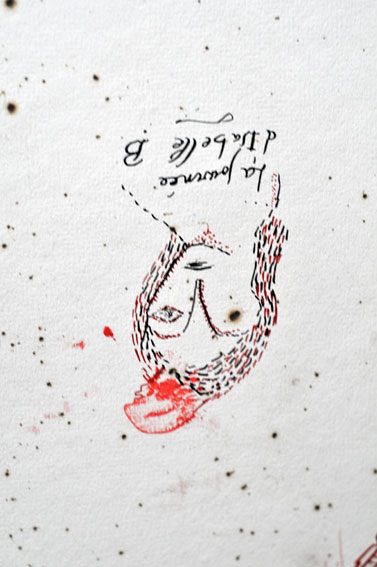 La Journée
d'Isabelle B